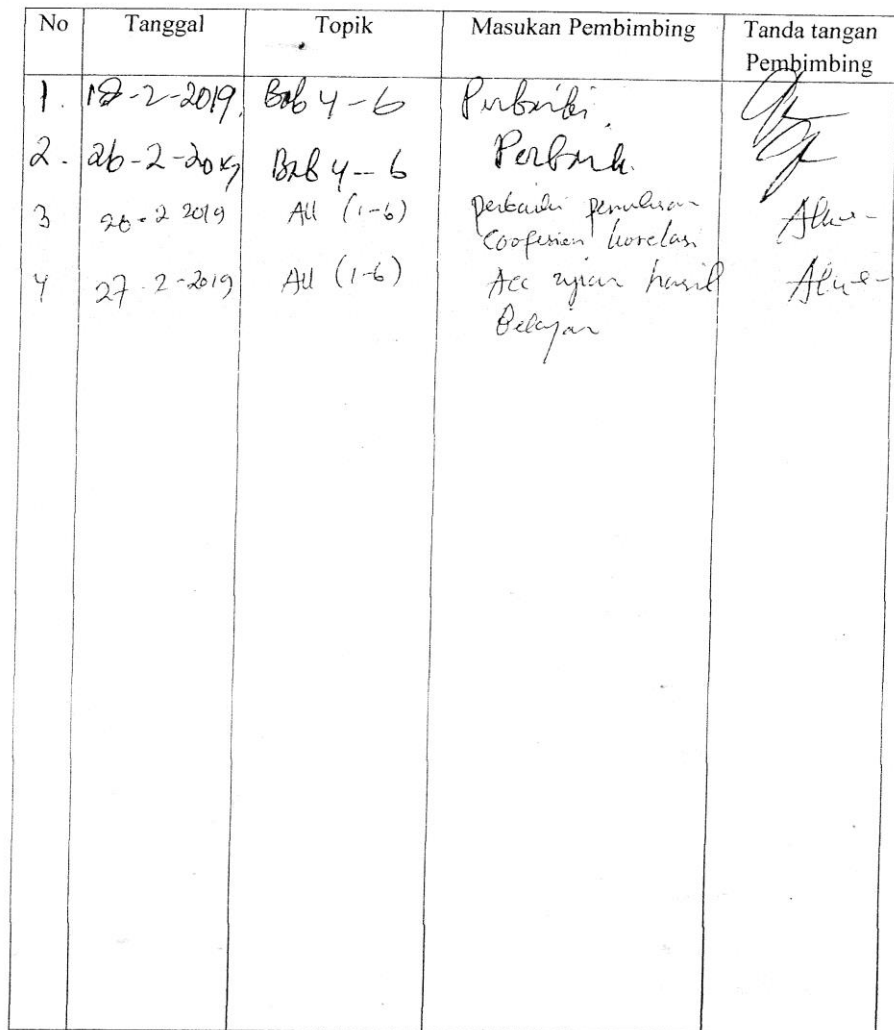 No Tanggal Topik Masukan Pembimbing Tanda tangan
Pembimbing
1. 18-2-2019. Bab 4-6 Perbaiki
2. 26-2-2019 Bab 4--6 Perbaiki
3 26-2 2019 All (1-6) perbaiki penulisan
Coofesien korelasi
4 27-2-2019 All (1-6) Acc ujian hasil